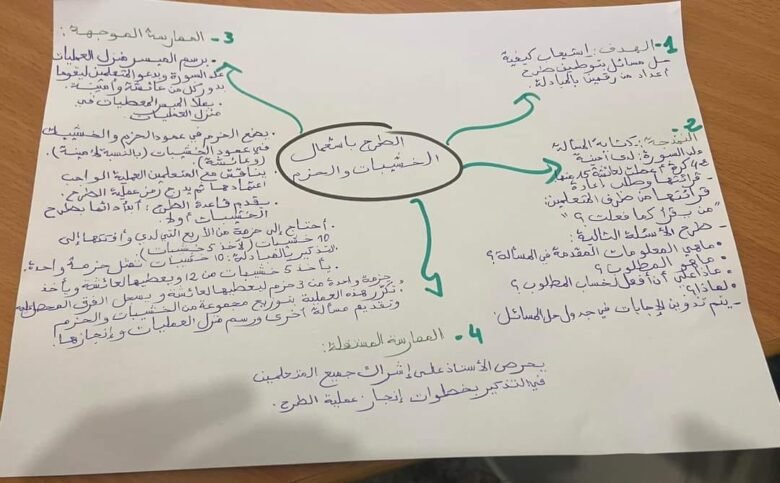 الطرح باستعمال
الخشيبات والحزم
1- الهدف: استيعاب كيفية
حل مسائل بتوظيف طرح
أعداد من رقمين بالمبادلة.
2- النمذجة: كتابة المسألة
على السبورة: لدى أمينة
42 كرة أعطت لعائشة منها
- قراءتها وطلب إعادة
قراءتها من طرف المتعلمين.
"من يقرأ كما فعلت؟"
- طرح الأسئلة التالية:
• ماهي المعلومات المقدمة في المسألة؟
• ماهو المطلوب؟
• ماذا علي أن أفعل لحساب المطلوب؟
• لماذا؟
- يتم تدوين الإجابات في جدول حل المسائل.
3- الممارسة الموجهة:
• يرسم الميسر منزل العمليات
على السبورة ويدعو المتعلمين ليقوما
بدور كل من عائشة وأمينة.
• يملأ الميسر المعطيات في
منزل العمليات
• يضع الحزم في عمود الحزم والخشيبات
في عمود الخشيبات (بالنسبة لأمينة)
(وعائشة).
• يناقش مع المتعلمين العملية الواجب
اعتمادها ثم يدرج رمز عملية الطرح.
• يقدم قاعدة الطرح: أبدأ دائما بطرح
الخشيبات أولا.
• أحتاج إلى حزمة من الأربع التي لدي وأفتكها إلى
10 خشيبات (لآخذ 5 خشيبات)
التذكير بالمبادلة: 10 خشيبات تمثل حزمة واحدة.
• يأخذ 5 خشيبات من 12 ويعطيها لعائشة ويأخذ
حزمة واحدة من 3 حزم ليعطيها لعائشة ويسجل الفرق المحصل عليه
• تكرر هذه العملية بتوزيع مجموعة من الخشيبات والحزم
وتقديم مسألة أخرى ورسم منزل العمليات وإنجازها!
4- الممارسة المستقلة:
يحرص الأستاذ على إشراك جميع المتعلمين
في التذكير بخطوات إنجاز عملية الطرح.